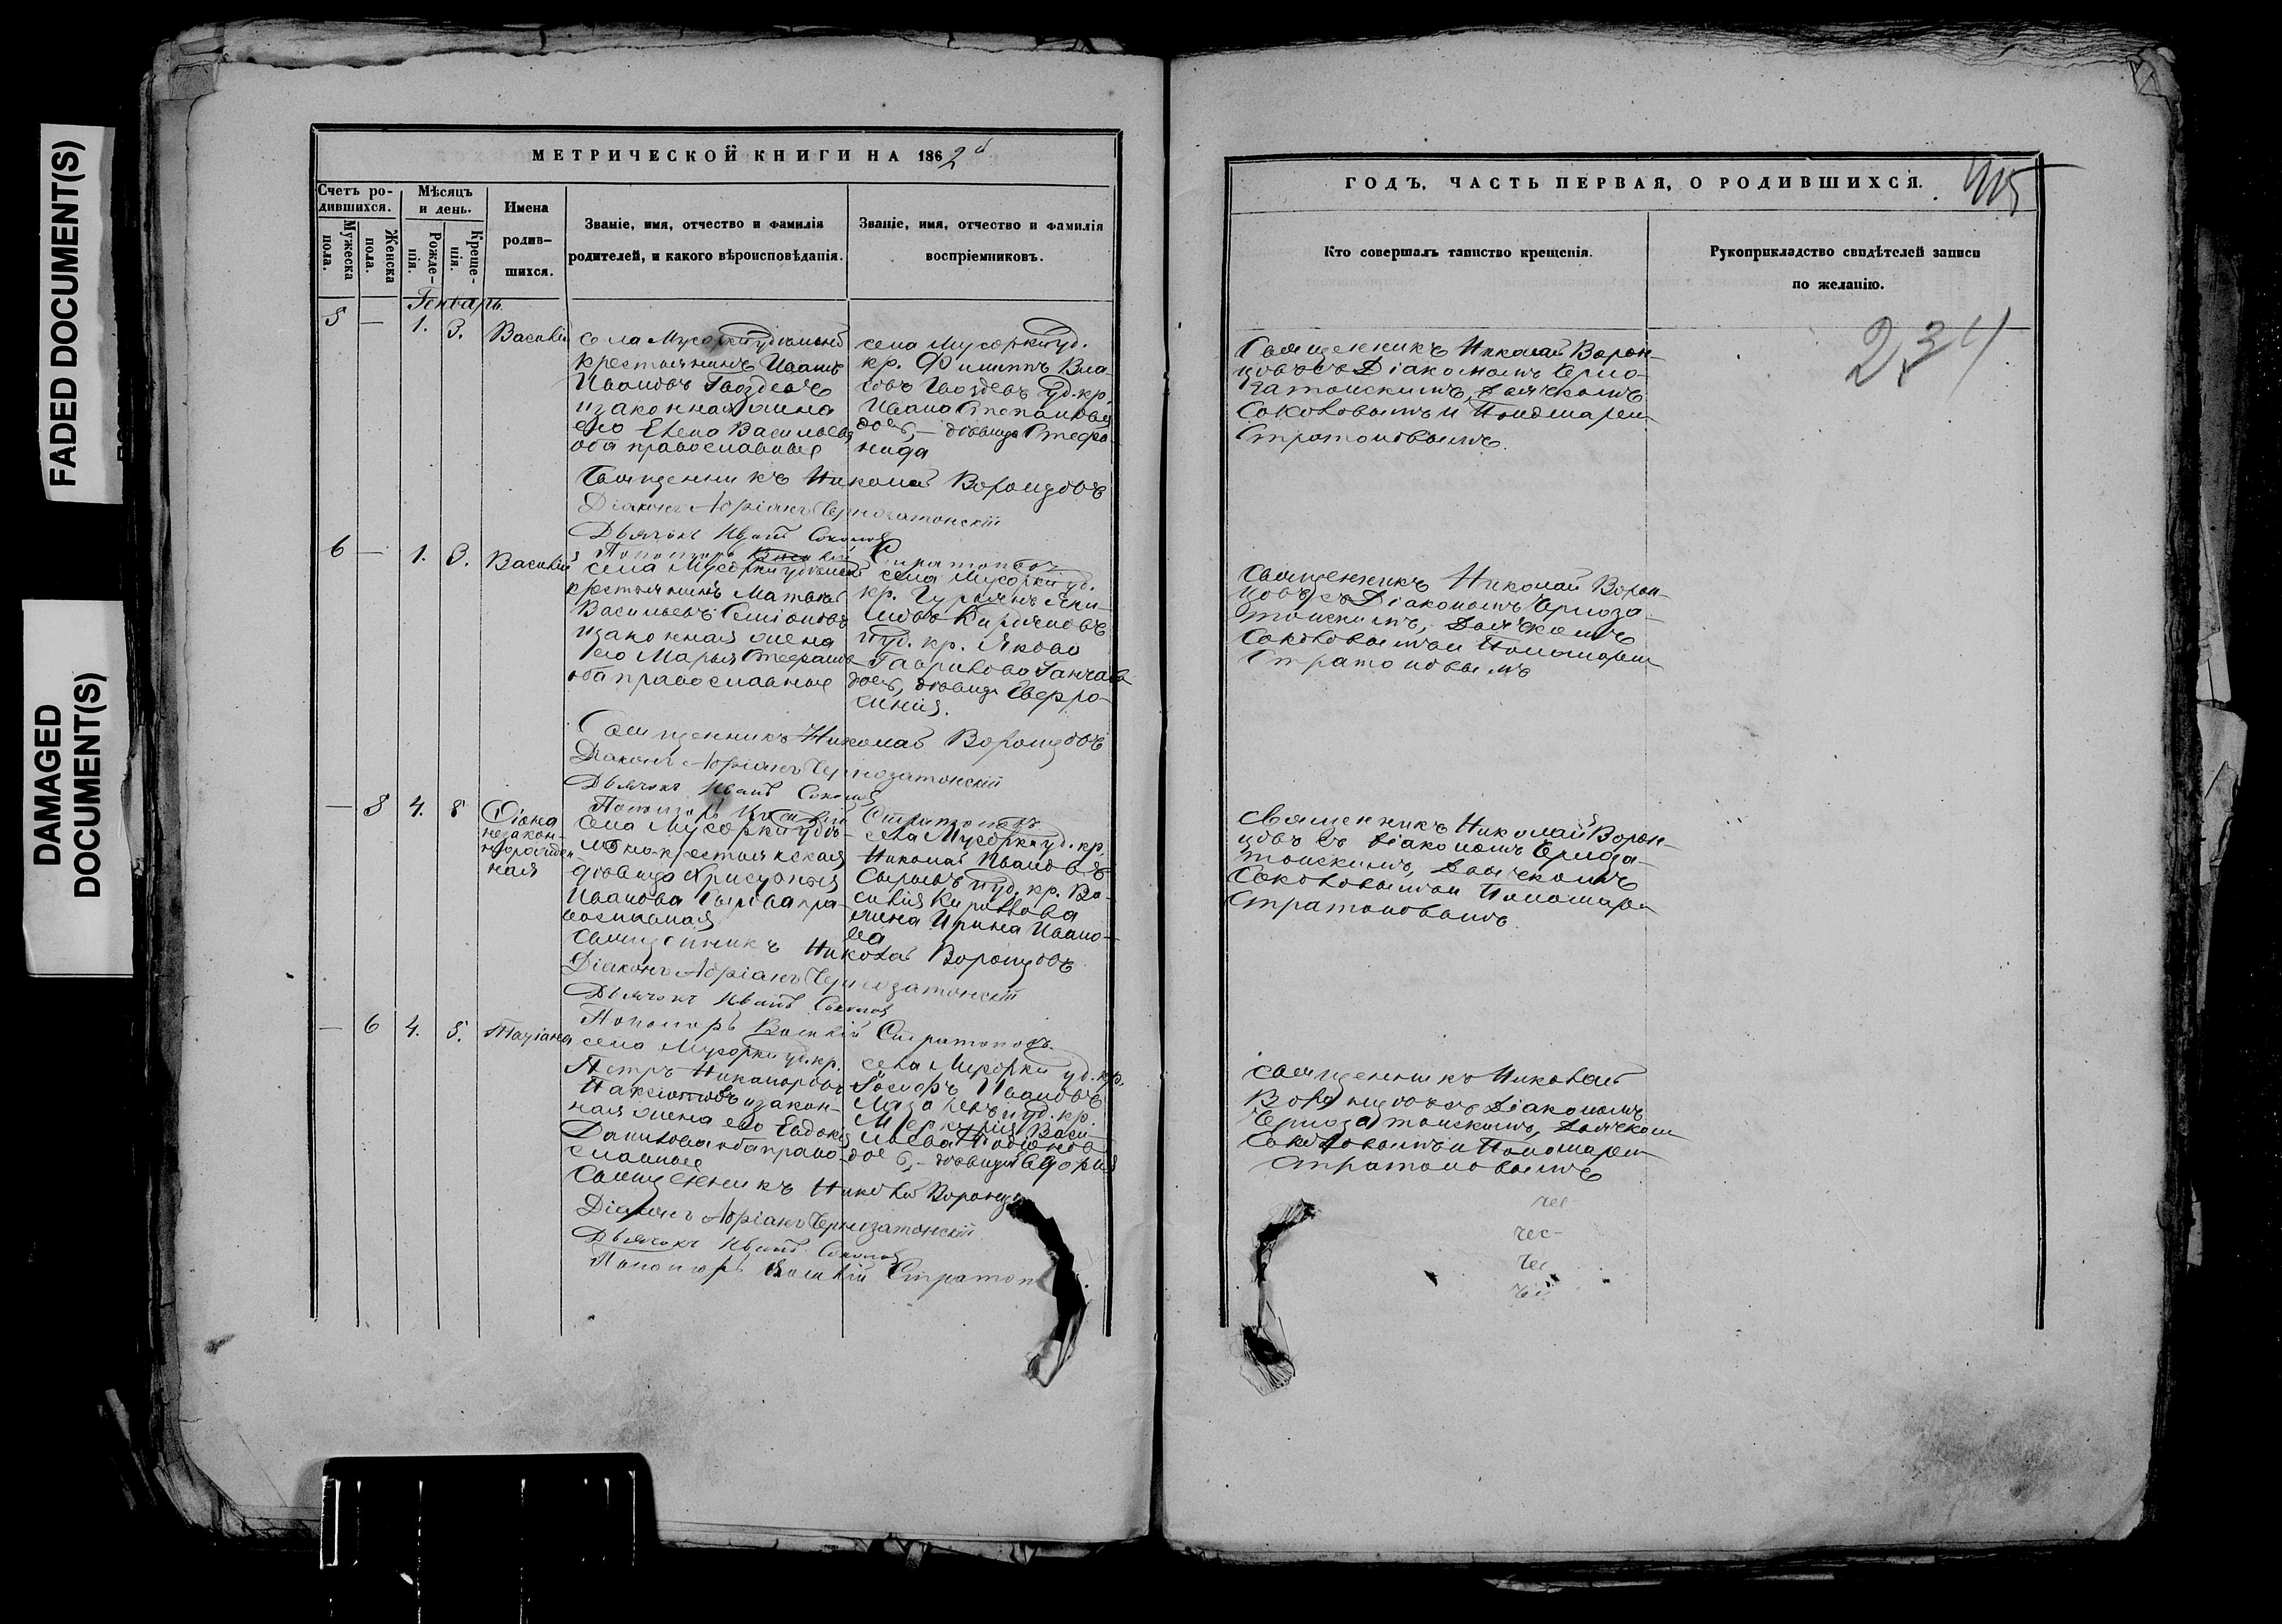 FADED DOCUMENT(S)
DAMAGED
DOCUMENT(S)
МЕТРИЧЕСКОЙ КНИГИ НА 1862й
Счетъ ро-
дившихся.
Мужеска
пола.
Женска
пола.
Мѣсяцъ
и день.
Рожде-
нія.
Креще-
нія.
Имена
родив-
шихся.
Званіе, имя, отчество и фамилія
родителей, и какого вѣроисповѣданія.
Званіе, имя, отчество и фамилія
воспріемниковъ.
Генварь.
5 — 1. 3. Василій
села Мусорки удѣльный
крестьянинъ Иванъ
Ивановъ Гвоздевъ
и законная жена
его Елена Васильева
оба православные
села Мусорки уд.
кр. Филиппъ Вла-
совъ Гвоздевъ и уд. кр.
Ивана Степанова
дочь, — дѣвица Стефа-
нида
Священникъ Николай Воронцовъ
Діаконъ Адріанъ Чернозатонскій
Дьячокъ Иванъ Соколов
Пономарь Василій Стратоновъ
6 — 1. 3. Василій
села Мусорки удѣльный
крестьянинъ Матвей
Васильевъ Семіоновъ
и законная жена
его Марья Стефанова
оба православные
села Мусорки уд.
кр. Гурьянъ Яки-
мовъ Кирдяновъ
и уд. кр. Якова
Гаврилова Ганчаро
дочь, дѣвица Евфро-
синия.
Священникъ Николай Воронцовъ
Діаконъ Адріанъ Чернозатонскій
Дьячокъ Иванъ Соколов
Пономарь Василій Стратоновъ
— 5 4. 8
незакон-
норожден-
ная
села Мусорки удѣ-
льно-крестьянская
дѣвица Хрисуонья
Иванова Сырова пра-
вославная
села Мусорки уд. кр.
Николай Ивановъ
Сыровъ и уд. кр. Ва-
силия Кирилова
жена Ирина Ивано-
ва
Священникъ Николай Воронцовъ
Діаконъ Адріанъ Чернозатонскій
Дьячокъ Иванъ Соколов
Пономарь Василій Стратоновъ.
— 6 4. 8. Татіана
села Мусорки уд. кр.
Петръ Никаноровъ
и закон-
ная жена его Евдокія
Данилова оба право-
славные
села Мусорки уд. кр.
Іосифъ Ивановъ
и уд. кр.
Меркурія Васи-
льева Родіонова
дочь, — дѣвица Ѳедорія
Священникъ Николай Воронцо
Діаконъ Адріанъ Чернозатонскій
Дьячокъ Иванъ Соколов
Пономарь Василій Стратон
ГОДЪ, ЧАСТЬ ПЕРВАЯ, О РОДИВШИХСЯ.
Кто совершалъ таинство крещенія.
Рукоприкладство свидѣтелей записи
по желанію.
234
Священникъ Николай Ворон-
цовъ съ Діакономъ Черно-
затонскимъ, Дьячкомъ
Соколовымъ и Пономарем
Стратоновымъ.
Священникъ Николай Ворон-
цовъ съ Діакономъ Черноза-
тонскимъ, Дьячкомъ
Соколовымъ и Пономарем
Стратоновымъ
Священникъ Николай Ворон-
цовъ съ Діакономъ Черноза-
тонскимъ, Дьячкомъ
Соколовымъ и Пономарем
Стратоновымъ.
Священникъ Николай
Воронцовъ съ Діакономъ
Чернозатонскимъ, Дьячком
Соколовымъ и Пономарем
Стратоновымъ